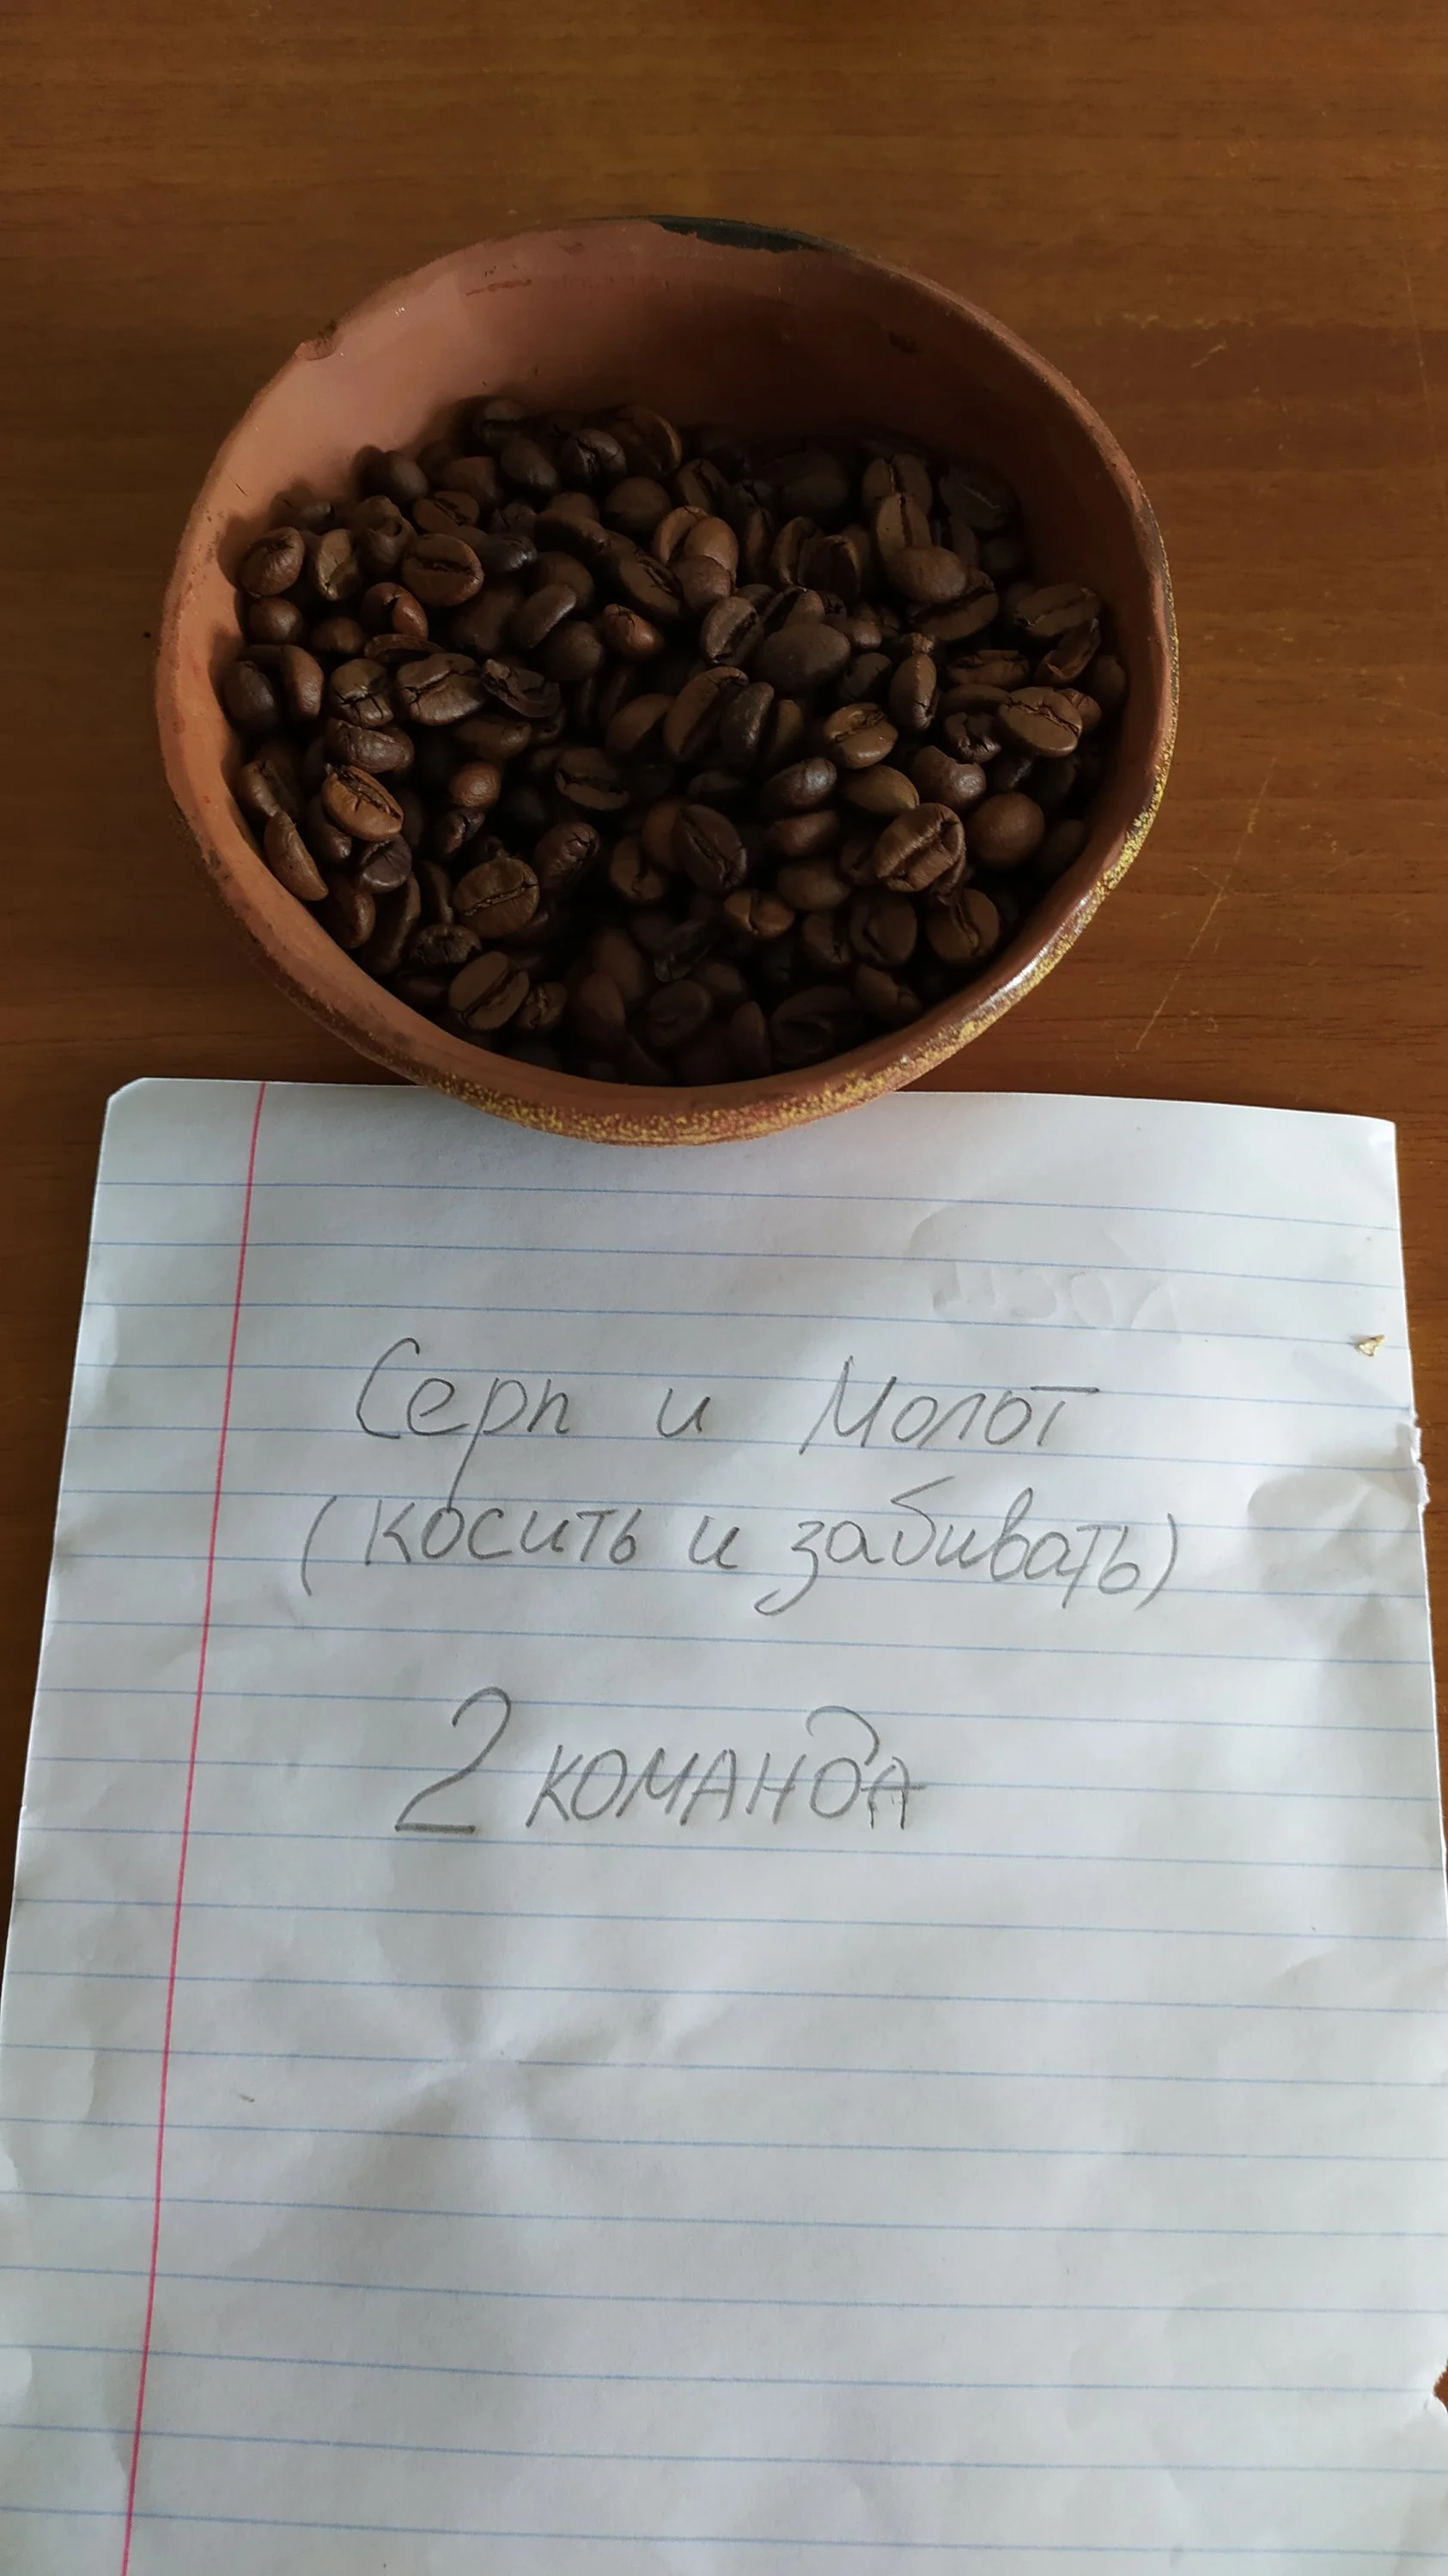 Серп и Молот
(косить и забивать)
2 команда